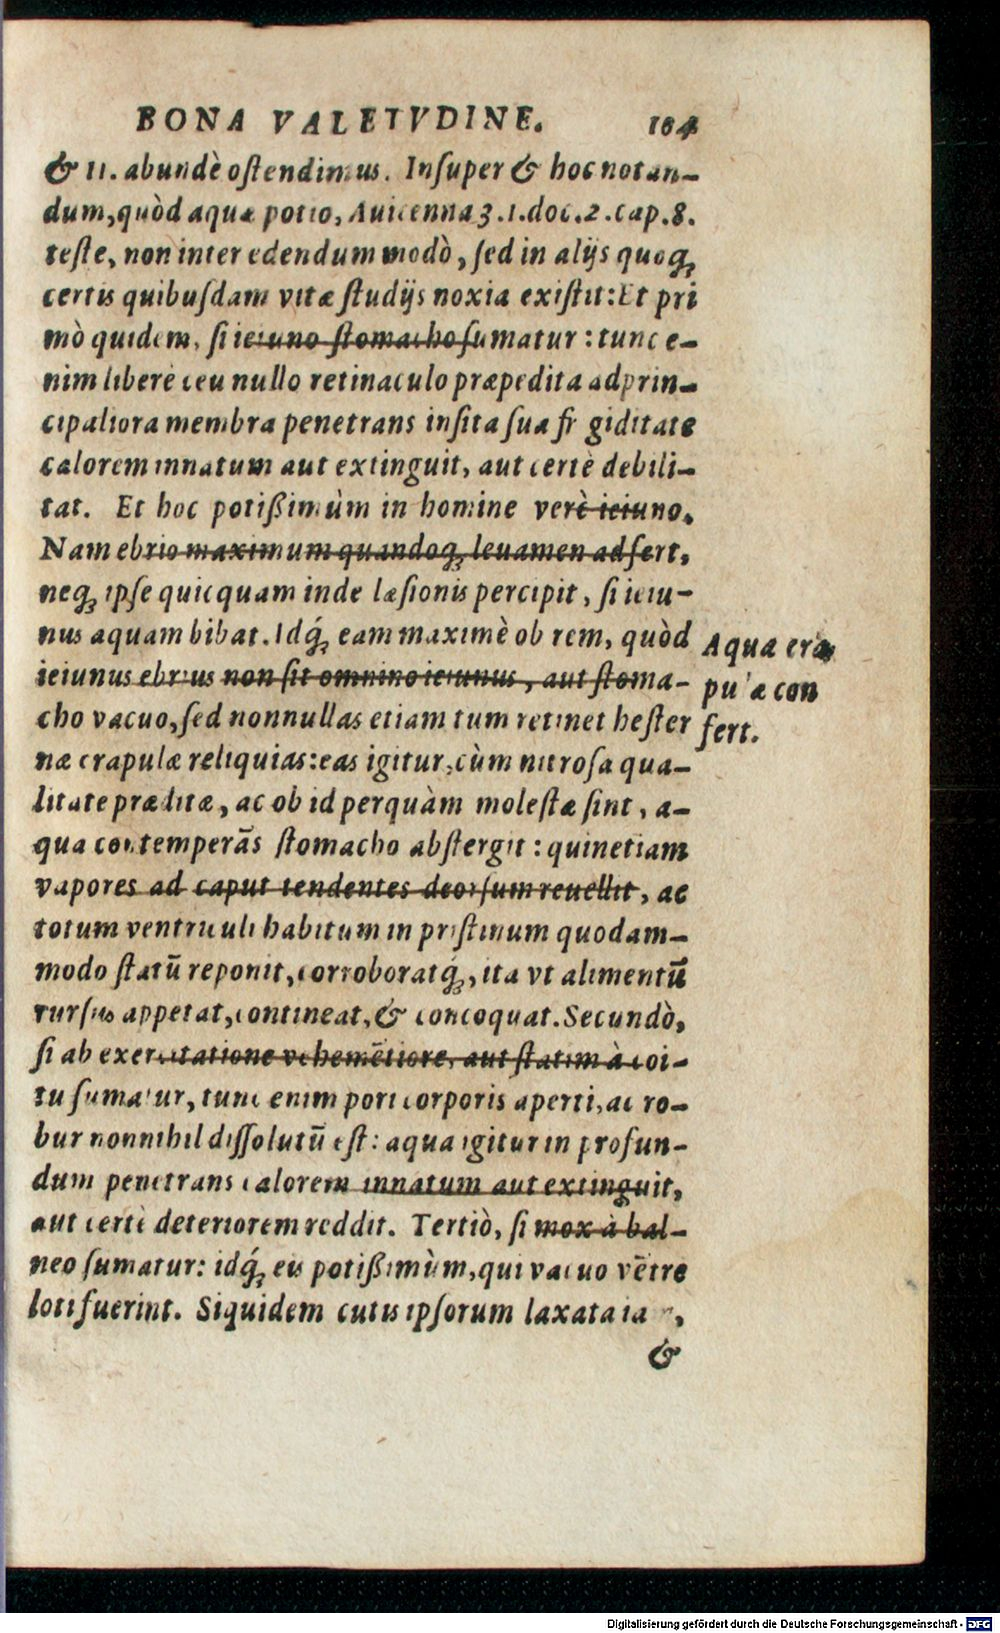 BONA VALETVDINE. 104
& 11. abundè oſtendimus. Inſuper & hoc notan-
dum, quòd aquæ potio, Auicenna 3.1.doc.2.cap.8.
teſte, non inter edendum modò, ſed in alijs quoq́;
certis quibuſdam vitæ ſtudijs noxia exiſtit: Et pri
mò quidem, ſi ieiuno ſtomacho ſumatur: tunc e-
nim liberè ceu nullo retinaculo præpedita ad prin-
cipaliora membra penetrans inſita ſua fr giditate
calorem innatum aut extinguit, aut certè debili-
tat. Et hoc potißimùm in homine verè ieiuno.
Nam ebrio maximum quandoq; leuamen adfert,
neq; ipſe quicquam inde læſionis percipit, ſi ieiu-
nus aquam bibat. Idq́; eam maximè ob rem, quòd
ieiunus ebrius non ſit omnino ieiunus, aut ſtoma-
cho vacuo, ſed nonnullas etiam tum retinet heſter
næ crapulæ reliquias: eas igitur, cùm nitroſa qua-
litate præditæ, ac ob id perquàm moleſtæ ſint, a-
qua contemperãs ſtomacho abſtergit: quinetiam
vapores ad caput tendentes deorſum reuellit, ac
totum ventriculi habitum in priſtinum quodam-
modo ſtatũ reponit, corroboratq́;, ita vt alimentũ
rurſus appetat, contineat, & concoquat. Secundò,
ſi ab exercitatione vehemẽtiore, aut ſtatim à coi-
tu ſumatur, tunc enim pori corporis aperti, ac ro-
bur nonnihil diſſolutũ eſt: aqua igitur in profun-
dum penetrans calorem innatum aut extinguit,
aut certè deteriorem reddit. Tertiò, ſi mox à bal-
neo ſumatur: idq́; eis potißimùm, qui vacuo vẽtre
loti fuerint. Siquidem cutis ipſorum laxata ia ,
&
Aqua cra
pulæ con
fert.
Digitalisierung gefördert durch die Deutsche Forschungsgemeinschaft - DFG